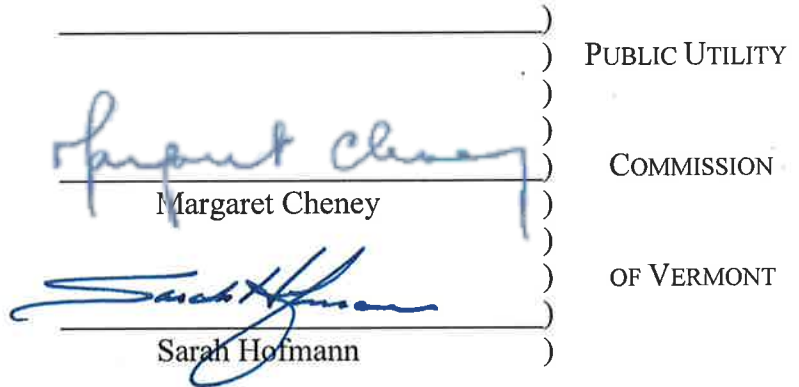 )
) PUBLIC UTILITY
)
)
Margaret Cheney ) COMMISSION
Margaret Cheney )
)
) OF VERMONT
Sarah Hofmann )
Sarah Hofmann )